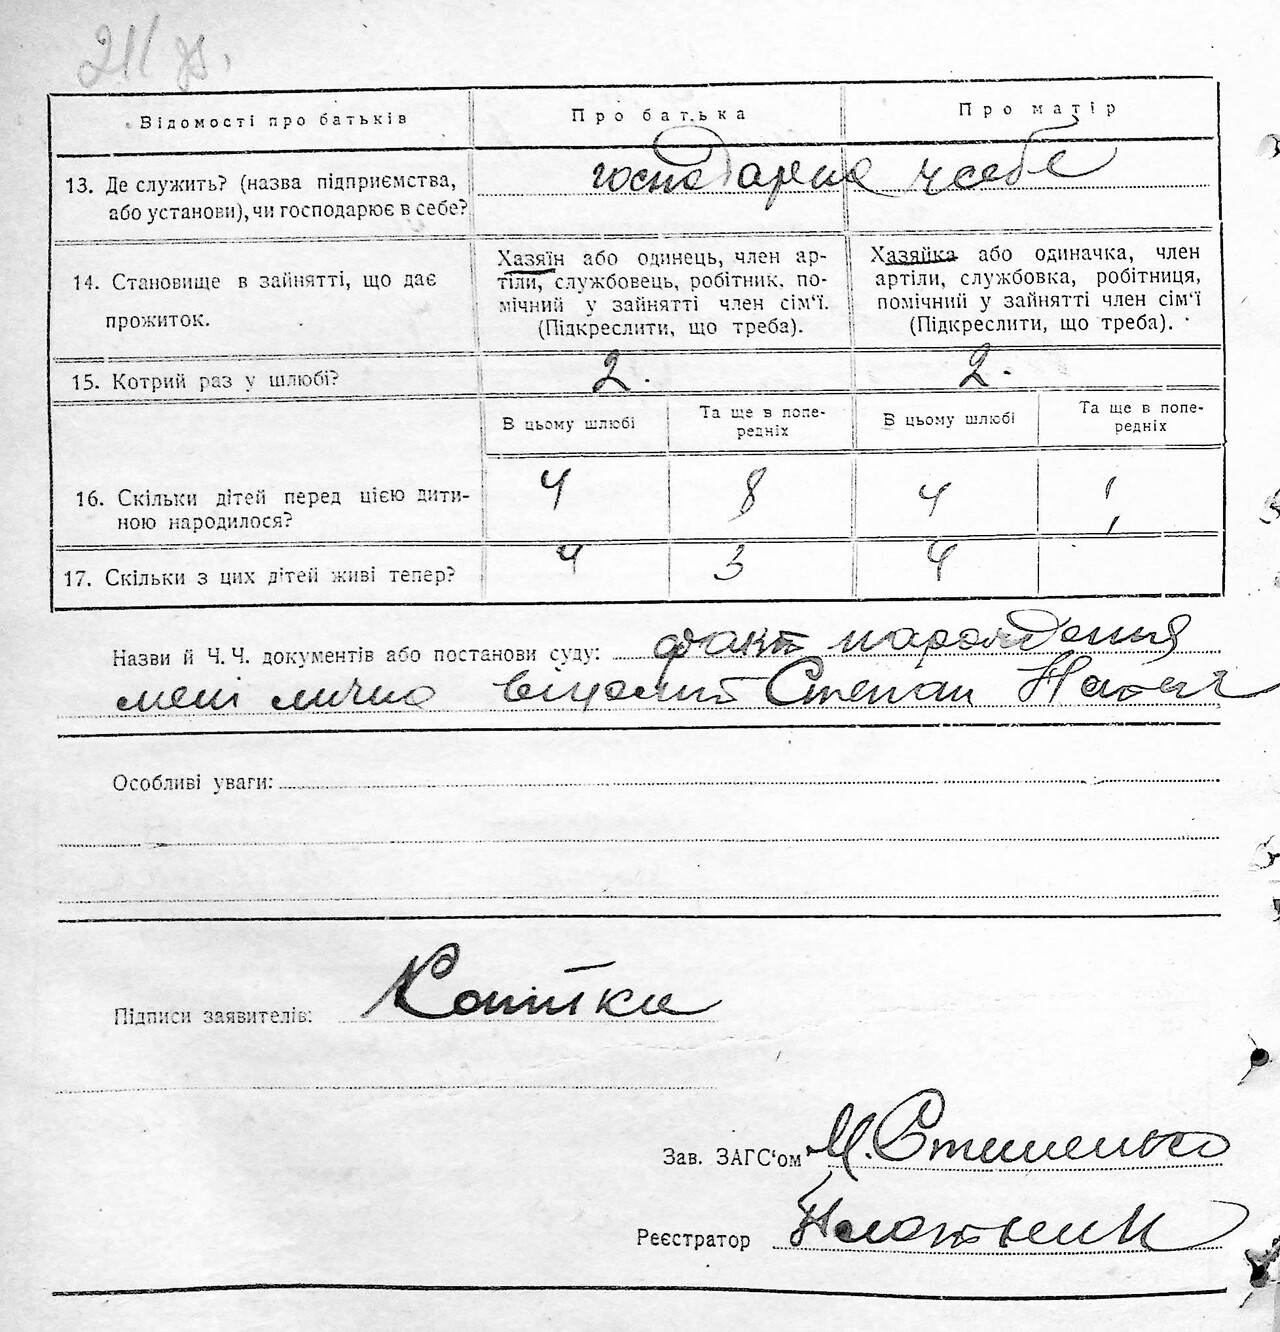 211 зв.
Відомості про батьків
Про батька
Про матір
13. Де служить? (назва підприємства,
або установи), чи господарює в себе?
господарює у себе
14. Становище в зайнятті, що дає
прожиток.
Хазяїн або одинець, член ар-
тіли, службовець, робітник, по-
мічний у зайнятті член сім'ї.
(Підкреслити, що треба).
Хазяйка або одиначка, член
артіли, службовка, робітниця,
помічний у зайнятті член сім'ї
(Підкреслити, що треба).
15. Котрий раз у шлюбі?
2.
2.
В цьому шлюбі
Та ще в попе-
редніх
В цьому шлюбі
Та ще в попе-
редніх
16. Скільки дітей перед цією дити-
ною народилося?
4
8
4
1
17. Скільки з цих дітей живі тепер?
4
3
4
1
Назви й Ч. Ч. документів або постанови суду: факт народження
мені лично відомий Степан
Особливі уваги:
Підписи заявителів:
Зав. ЗАГС'ом М. Стешенько
Реєстратор Плотник